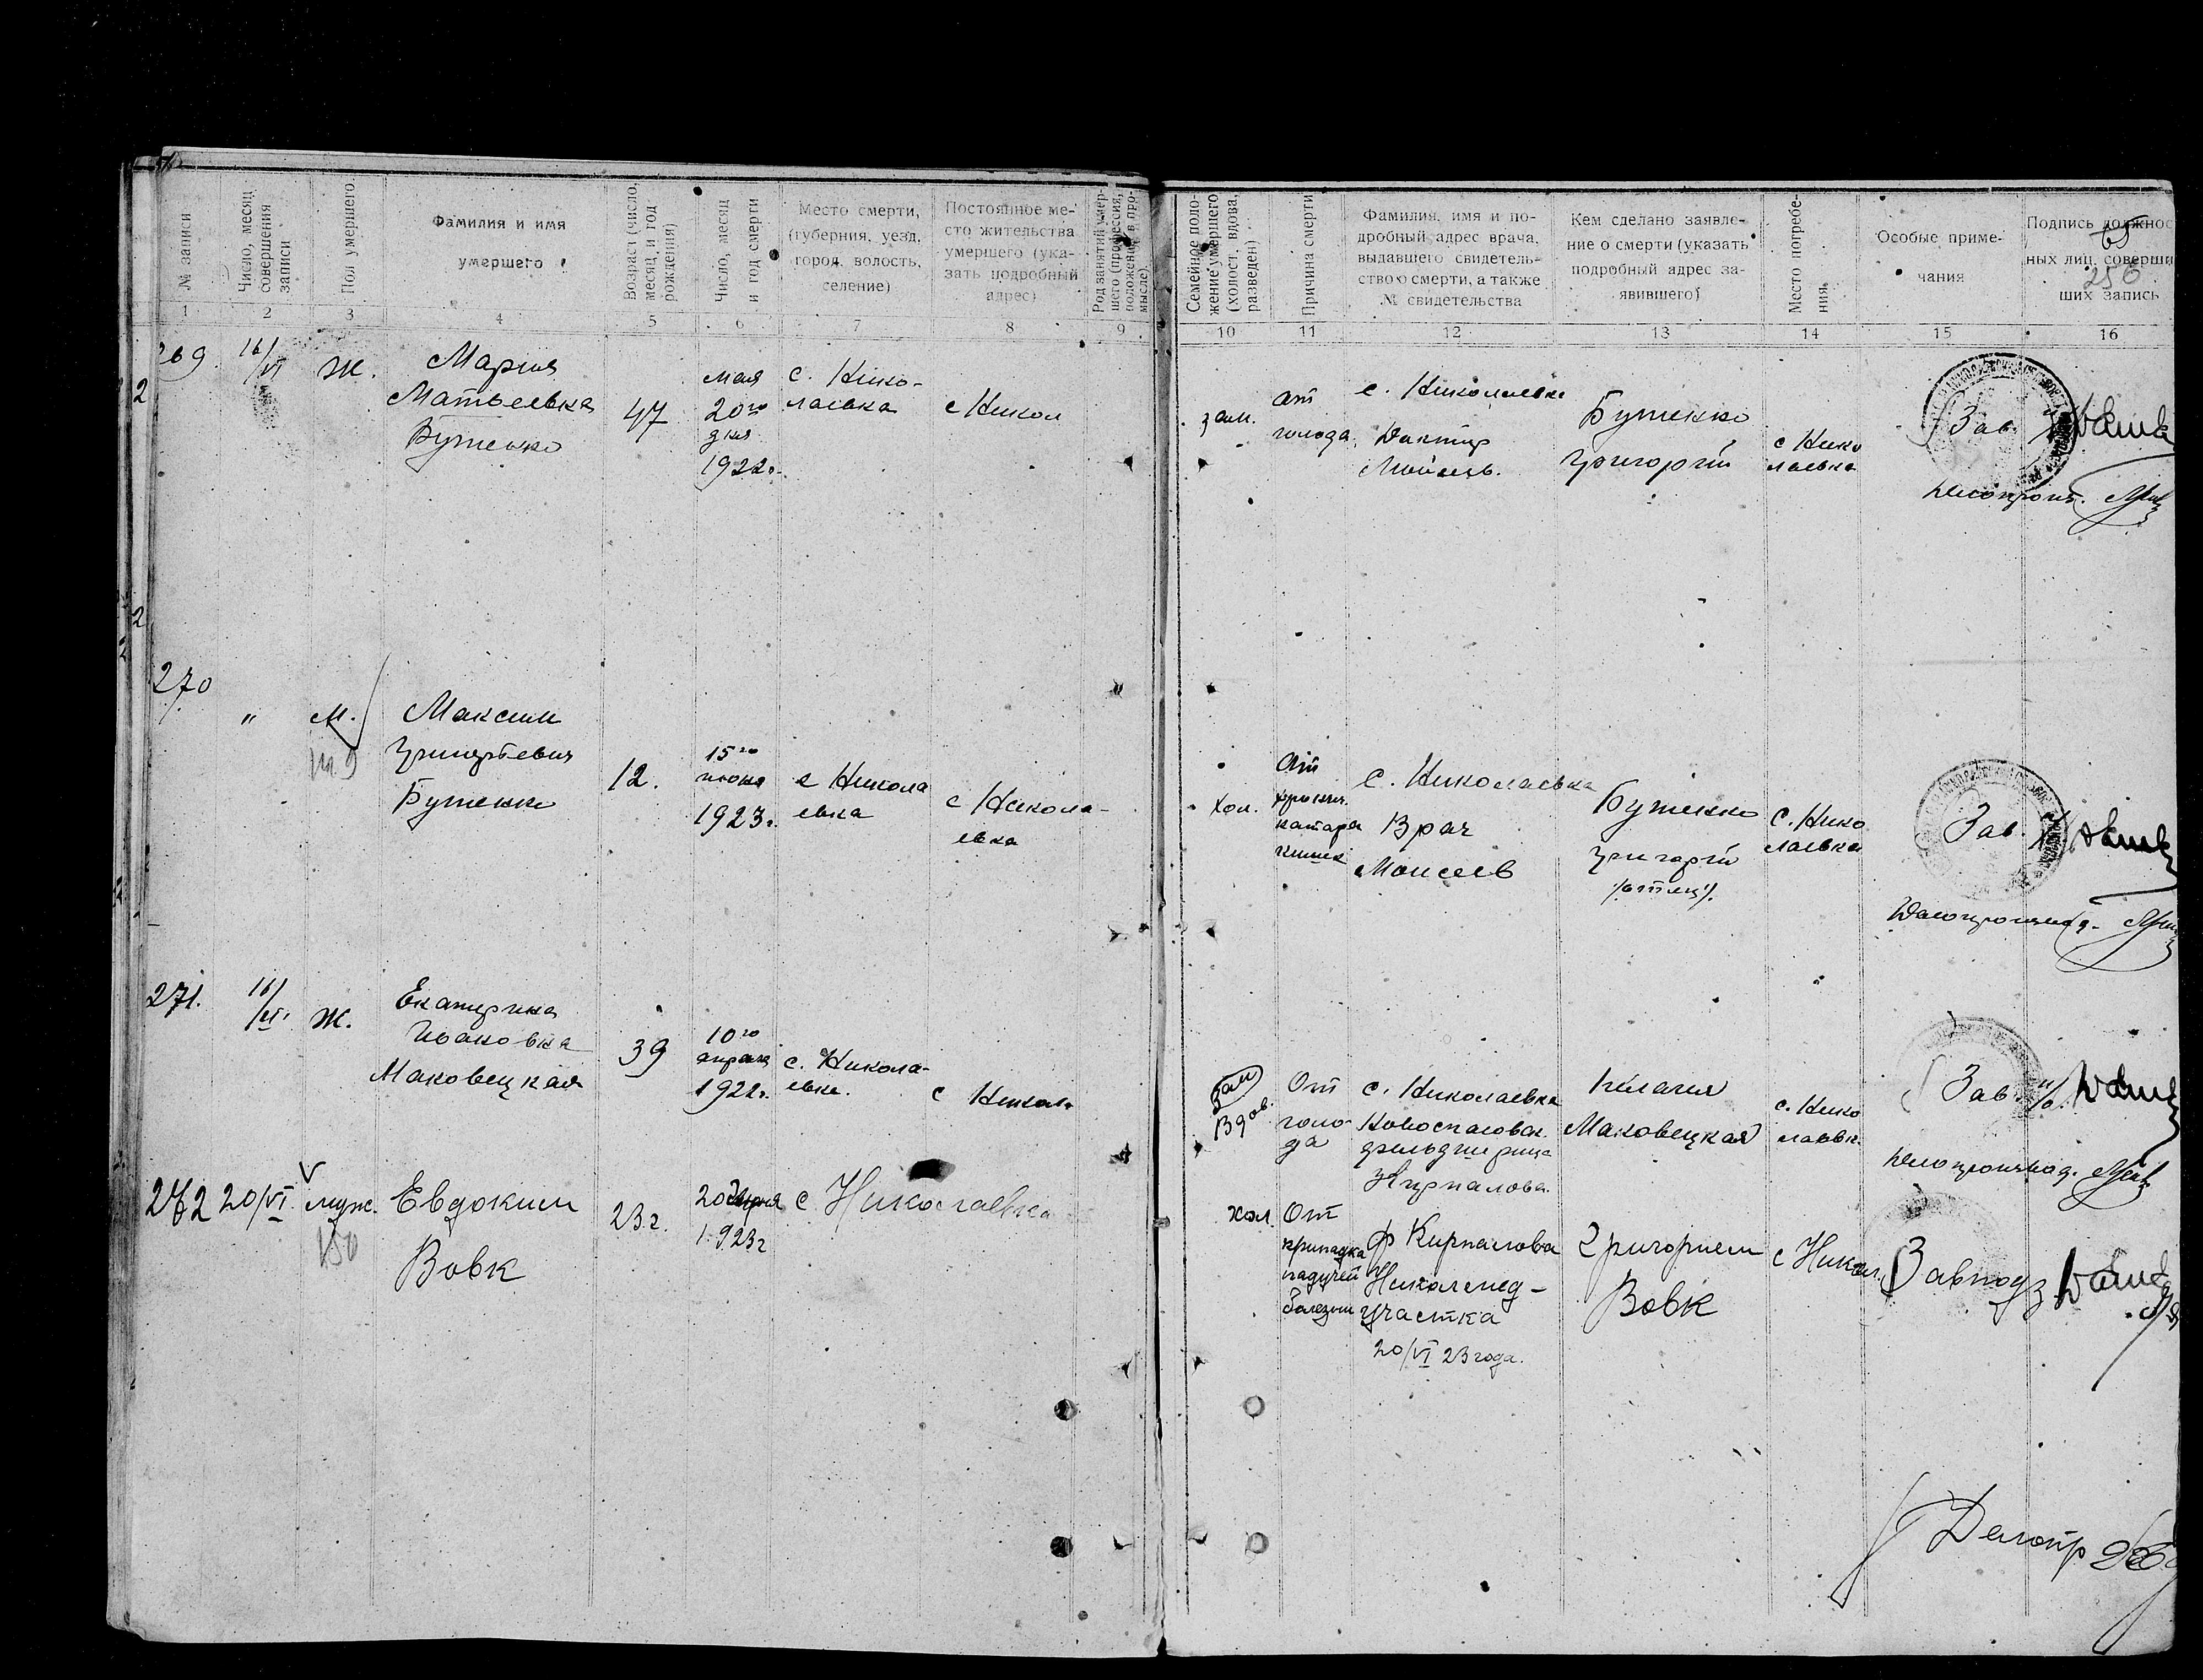 № записи
Число, месяц совершения записи
Пол умершего
Фамилия и имя
умершего
Возраст (число, месяц и год рождения)
Число, месяц и год смерти
Место смерти,
(губерния, уезд,
город, волость,
селение)
Постоянное ме-
сто жительства
умершего (ука-
зать подробный
адрес)
Род занятий умер-
шего (профессия,
положение в про-
мысле)
Семейное поло-
жение умершего
(холост, вдова,
разведен)
Причина смерти
Фамилия, имя и по-
дробный адрес врача,
выдавшего свидетель-
ство о смерти, а также
№ свидетельства
Кем сделано заявле-
ние о смерти (указать
подробный адрес за-
явившего)
Место погребе-
ния
Особые приме-
чания
Подпись должнос
ных лиц, соверши
ших запись
256
1 2 3 4 5 6 7 8 9 10 11 12 13 14 15 16
269
16/VI
Ж.
Мария
Матвеевна
Бутенко
47
мая
20го
дня
1922г.
с. Нико-
лаевка
с Никол
зам.
от
голода.
с. Николаевка
Доктор
Бутенко
Григорий
с Нико
лаевка
Зав.
270
"
М.
Максим
Григорьевич
Бутенко
12.
15го
июня
1923г.
с Никола
евка
с Никола-
евка
хол.
от
катара
кишек
с. Николаевка
Врач
Моисеев
Бутенко
Григорий
/отец/.
с. Нико
лаевка
Зав.
271.
16/VI.
Ж.
Екатерина
Ивановна
Маковецкая
39
10го
апреля
1922г.
с. Никола-
евка.
с Никол
зам
Вдов.
От
голо-
да
с. Николаевка
Новоспасовск.
фельдшерица
Кирпалова.
Пелагия
Маковецкая
с. Нико
лаевк.
Зав.
272
20/VI
муж.
150
Евдоким
Вовк
23г.
20 Июня
1923г
с Николаевка
хол.
От
припадка
падучей
болезни
ф Кирпалова
Николмед-
участка
20/VI 23 года.
Григорием
Вовк
с Никол.
Завподз
Делопр